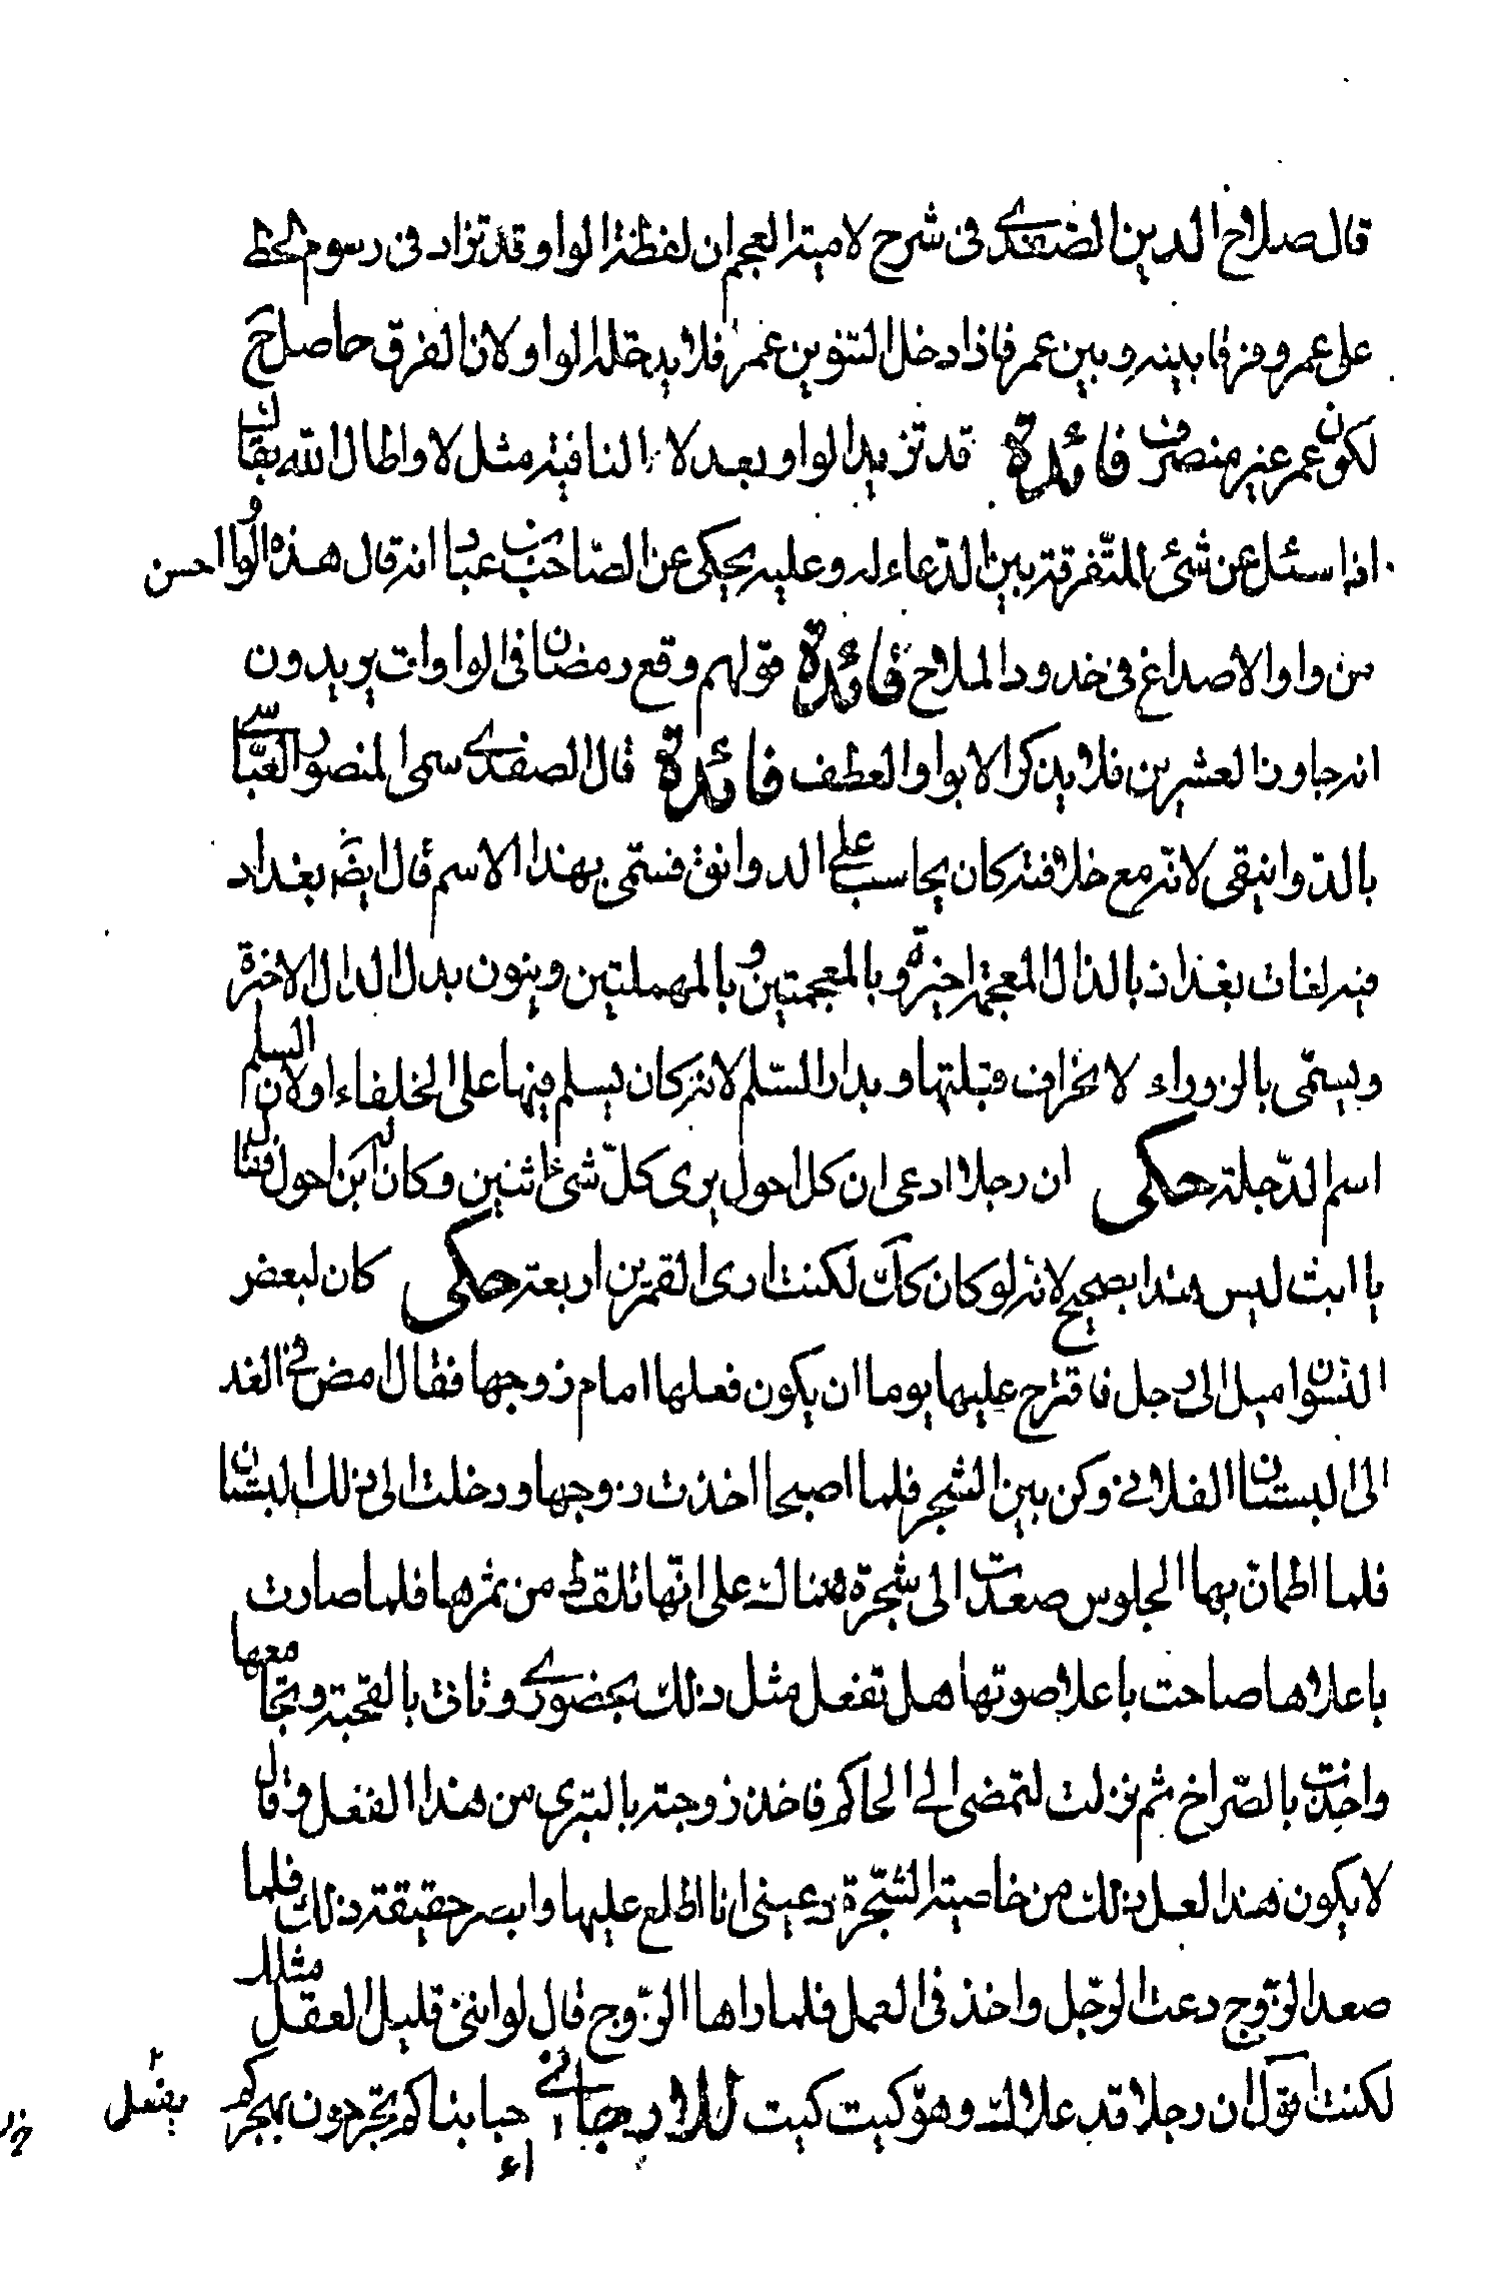 قال صلاح الدين الصفدی فی شرح لامیة العجم ان لفظة الواو قد تزاد فی رسوم الخط
علی عمرو فرقا بینه وبین عمر فاذا دخل التنوین عمرًا فلا یدخله الواو لان الفرق حاصل ح
لکون عمر غیر منصرف فائدة قد تزید الواو بعد لا النافیة مثل لا واطال الله بقاک
اذا سئل عن شئ للتفرقة بین الدعاء له وعلیه یحکی عن الصاحب بن عباد انه قال هذه الواو احسن
من واو الاصداغ فی خدود الملاح فائدة قولهم وقع رمضان فی الواوات یریدون
انه جاوز العشرین فلا یذکر الا بواو العطف فائدة قال الصفدی سمی المنصور العباسی
بالدوانیقی لانه مع خلافته کان یحاسب علی الدوانق فسمی بهذا الاسم قال ایضَ بغداد
فیه لغات بغداذ بالذال المعجمة اخیرة وبالمعجمتین وبالمهملتین وبنون بدل الدال الاخیرة
ویسمی بالزوراء لانحراف قبلتها وبدار السّلم لانه کان یسلم فیها علی الخلفاء او لان السلم
اسم الدّجلة حکی ان رجلا ادعی ان کل احول یری کلّ شئ اثنین وکان له ابن احول فقال
یا ابت لیس هذا بصحیح لانه لو کان کک لکنت اری القمرین اربعة حکی کان لبعض
النسوان میل الی رجل فاقترح علیها یوما ان یکون فعلها امام زوجها فقال امض فی الغد
الی البستان الفلانی وکن بین الشجر فلما اصبحا اخذت زوجها ودخلت الی ذلک البستان
فلما اطمان بها الجلوس صعدت الی شجرة هناک علی انّها تلقط من ثمرها فلما صارت
باعلاها صاحت باعلا صوتها هل تفعل مثل ذلک بحضوری وتاتی بالقحبة وتجامعها
واخذت بالصّراخ ثم نزلت لتمضی الی الحاکم فاخذ زوجته بالتبری من هذا الفعل وقال
لا یکون هذا لعل ذلک من خاصیة الشّجرة دعینی انا اطلع علیها وابصر حقیقة ذلک فلما
صعد الزّوج دعت الرّجل واخذ فی العمل فلما راها الزّوج قال لو اننی قلیل العقل مثلک
لکنت اقول ان رجلا قد علاک وهو کیت کیت للارجانی احبابنا کم تجرحون بهجرکم